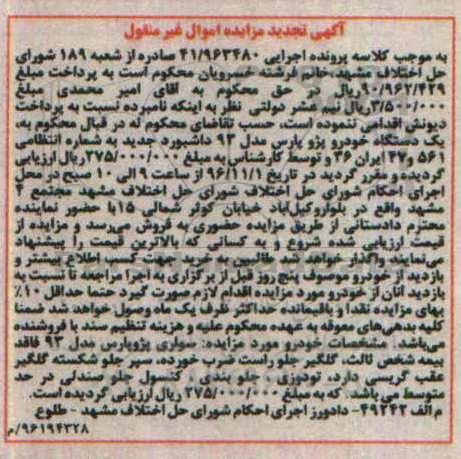 آگهی تجدید مزایده اموال غیر منقول
به موجب کلاسه پرونده اجرایی ۴۱/۹۶۳۴۸۰ صادره از شعبه ۱۸۹ شورای
حل اختلاف مشهد، خانم فرشته خسرویان محکوم است به پرداخت مبلغ
۹۰/۹۶۲/۴۲۹ریال در حق محکوم به آقای امیر محمدی مبلغ
۳/۵۰۰/۰۰۰ریال نیم عشر دولتی نظر به اینکه نامبرده نسبت به پرداخت
دیونش اقدامی ننموده است، حسب تقاضای محکوم له در قبال محکوم به،
یک دستگاه خودرو پژو پارس مدل ۹۳ داشبورد جدید به شماره انتظامی
۵۶۱ و۴۷ ایران ۳۶ و توسط کارشناس به مبلغ ۲۷۵/۰۰۰/۰۰۰ریال ارزیابی
گردیده و مقرر گردید در تاریخ ۹۶/۱۱/۱ از ساعت ۹ الی ۱۰ صبح در محل
اجرای احکام شورای حل اختلاف شورای حل اختلاف مشهد مجتمع ۴
مشهد واقع در بلوار وکیل‌آباد خیابان کوثر شمالی ۱۵با حضور نماینده
محترم دادستانی از طریق مزایده حضوری به فروش می‌رسد و مزایده از
قیمت ارزیابی شده شروع و به کسانی که بالاترین قیمت را پیشنهاد
می‌نمایند واگذار خواهد شد طالبین به خرید جهت کسب اطلاع بیشتر و
بازدید از خودرو موصوف پنج روز قبل از برگزاری به اجرا مراجعه تا نسبت به
بازدید آنان از خودرو مورد مزایده اقدام لازم صورت گیرد حتما حداقل ۱۰٪
بهای مزایده نقدا و باقیمانده حداکثر ظرف یک ماه وصول خواهد شد ضمنا
کلیه بدهی‌های معوقه به عهده محکوم علیه و هزینه تنظیم سند با فروشنده
می‌باشد. مشخصات خودرو مورد مزایده: سواری پژوپارس مدل ۹۳ فاقد
بیمه شخص ثالث، گلگیر جلو راست ضرب خورده، سپر جلو شکسته گلگیر
عقب گریسی دارد، تودوزی - جلو بندی - کنسول جلو صندلی در حد
متوسط می‌باشد. که به مبلغ ۲۷۵/۰۰۰/۰۰۰ ریال ارزیابی گردیده است.
م الف ۴۹۲۴۲- دادورز اجرای احکام شورای حل اختلاف مشهد - طلوع
۹۶۱۹۴۳۲۸/م